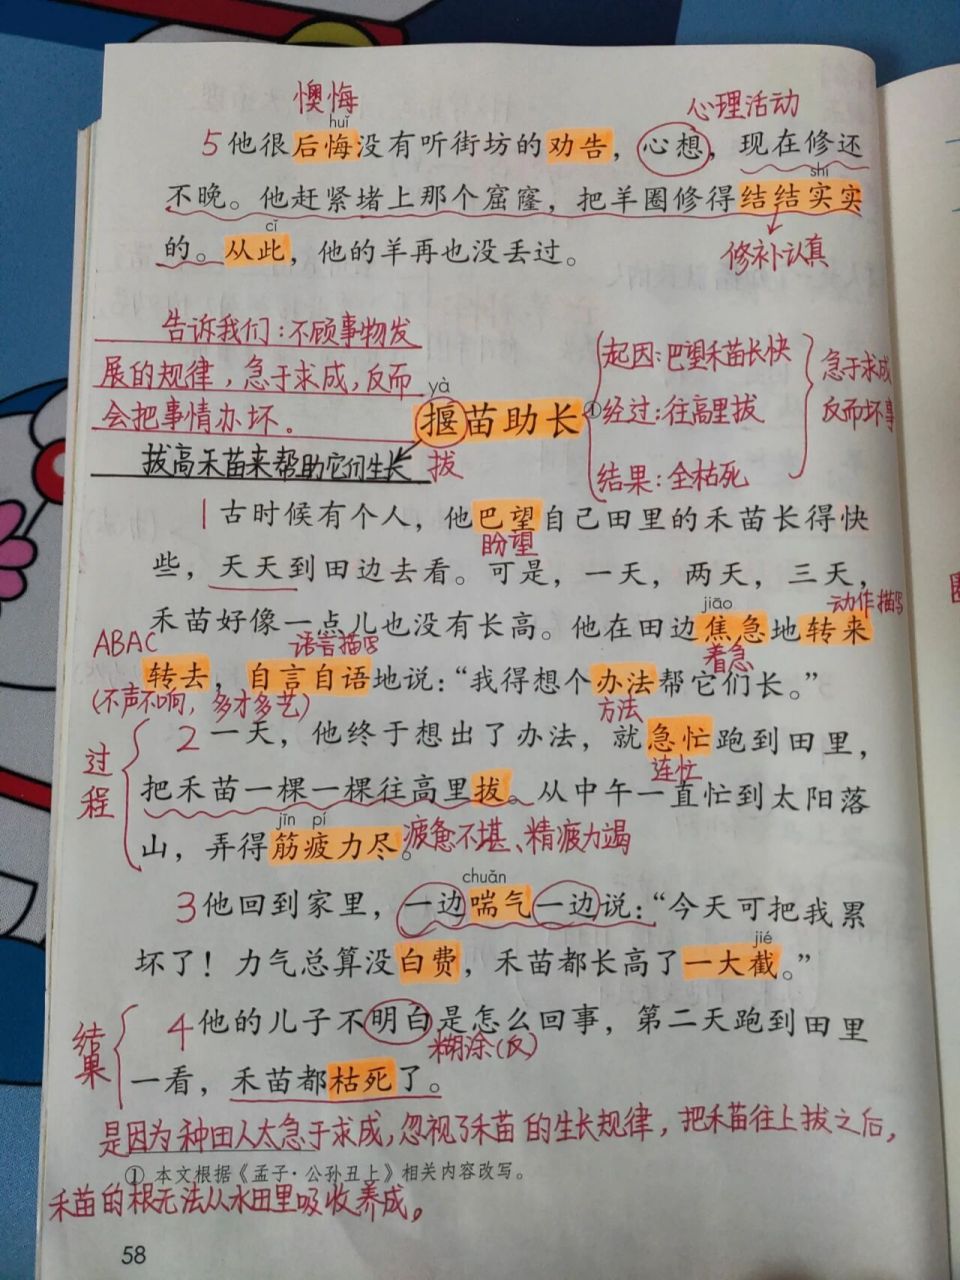 懊悔
心理活动
huǐ
5他很后悔没有听街坊的劝告，心想，现在修还
shi
不晚。他赶紧堵上那个窟窿，把羊圈修得结结实实
cǐ
的。从此，他的羊再也没丢过。
修补认真
告诉我们：不顾事物发
展的规律，急于求成，反而
会把事情办坏。
拔高禾苗来帮助它们生长
yà
揠苗助长①
拔
起因：巴望禾苗长快
经过：往高里拔
结果：全枯死
急于求成
反而坏事
1古时候有个人，他巴望自己田里的禾苗长得快
盼望
些，天天到田边去看。可是，一天，两天，三天，
jiāo
动作描写
禾苗好像一点儿也没有长高。他在田边焦急地转来
ABAC
语言描写
着急
转去，自言自语地说：“我得想个办法帮它们长。”
(不声不响，多才多艺)
方法
过程
2一天，他终于想出了办法，就急忙跑到田里，
连忙
把禾苗一棵一棵往高里拔。从中午一直忙到太阳落
jīn pí
山，弄得筋疲力尽。
疲惫不堪、精疲力竭
chuǎn
3他回到家里，一边喘气一边说：“今天可把我累
jié
坏了！力气总算没白费，禾苗都长高了一大截。”
结果
4他的儿子不明白是怎么回事，第二天跑到田里
糊涂(反)
一看，禾苗都枯死了。
是因为种田人太急于求成，忽视了禾苗的生长规律，把禾苗往上拔之后，
① 本文根据《孟子·公孙丑上》相关内容改写。
禾苗的根无法从水田里吸收养成。
58